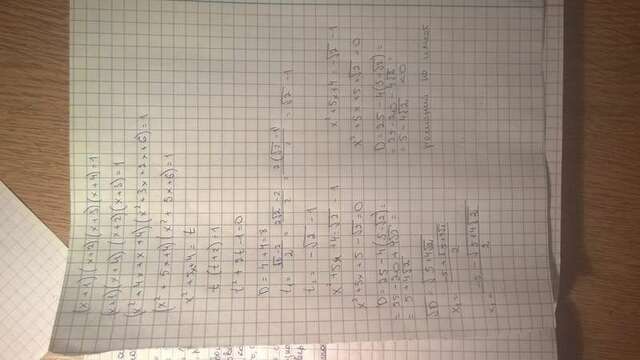 (x+1)(x+2)(x+3)(x+4)=1
(x+1)(x+4)(x+2)(x+3)=1
(x²+4x+x+4)(x²+3x+2x+6)=1
(x²+5x+4)(x²+5x+6)=1
x²+5x+4=t
t(t+2)=1
t²+2t-1=0
D=4+4=8
t₁= (√8-2)/2 = (2√2-2)/2 = 2(√2-1)/2 = √2-1
t₂= -√2-1
x²+5x+4=√2-1
x²+5x+5-√2=0
D=25-4(5-√2)=
=25-20+4√2=
=5+4√2
√D=√5+4√2
x²+5x+4=-√2-1
x²+5x+5+√2=0
D=25-4(5+√2)=
=25-20-4√2=
=5-4√2 <0
решений не имеет